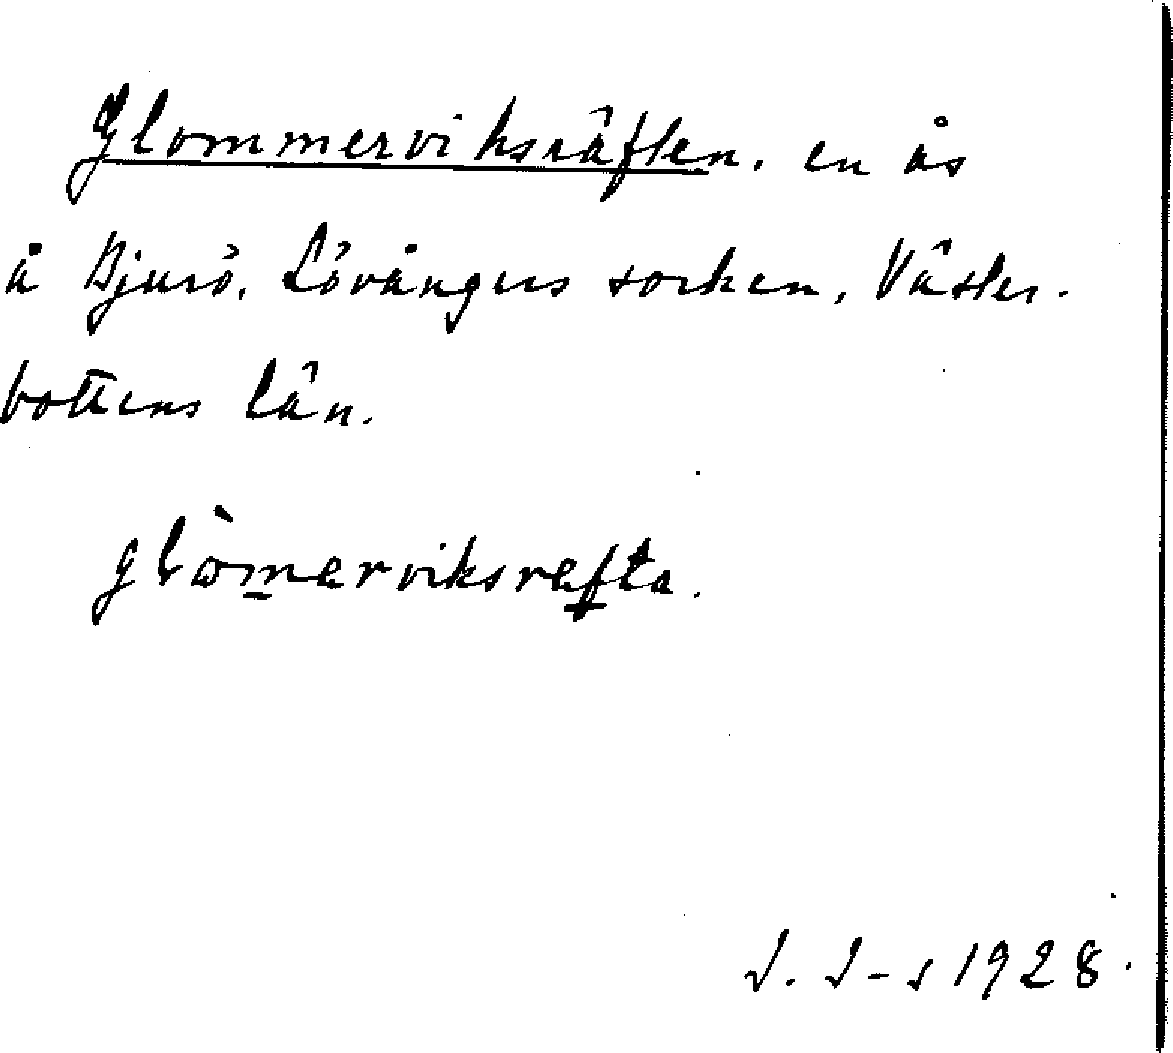 Glommerviksräften. en ås
å Bjurö, Lövångers socken, Väster-
bottens län.
glòmerviksrefta.
J. J-s 1928.